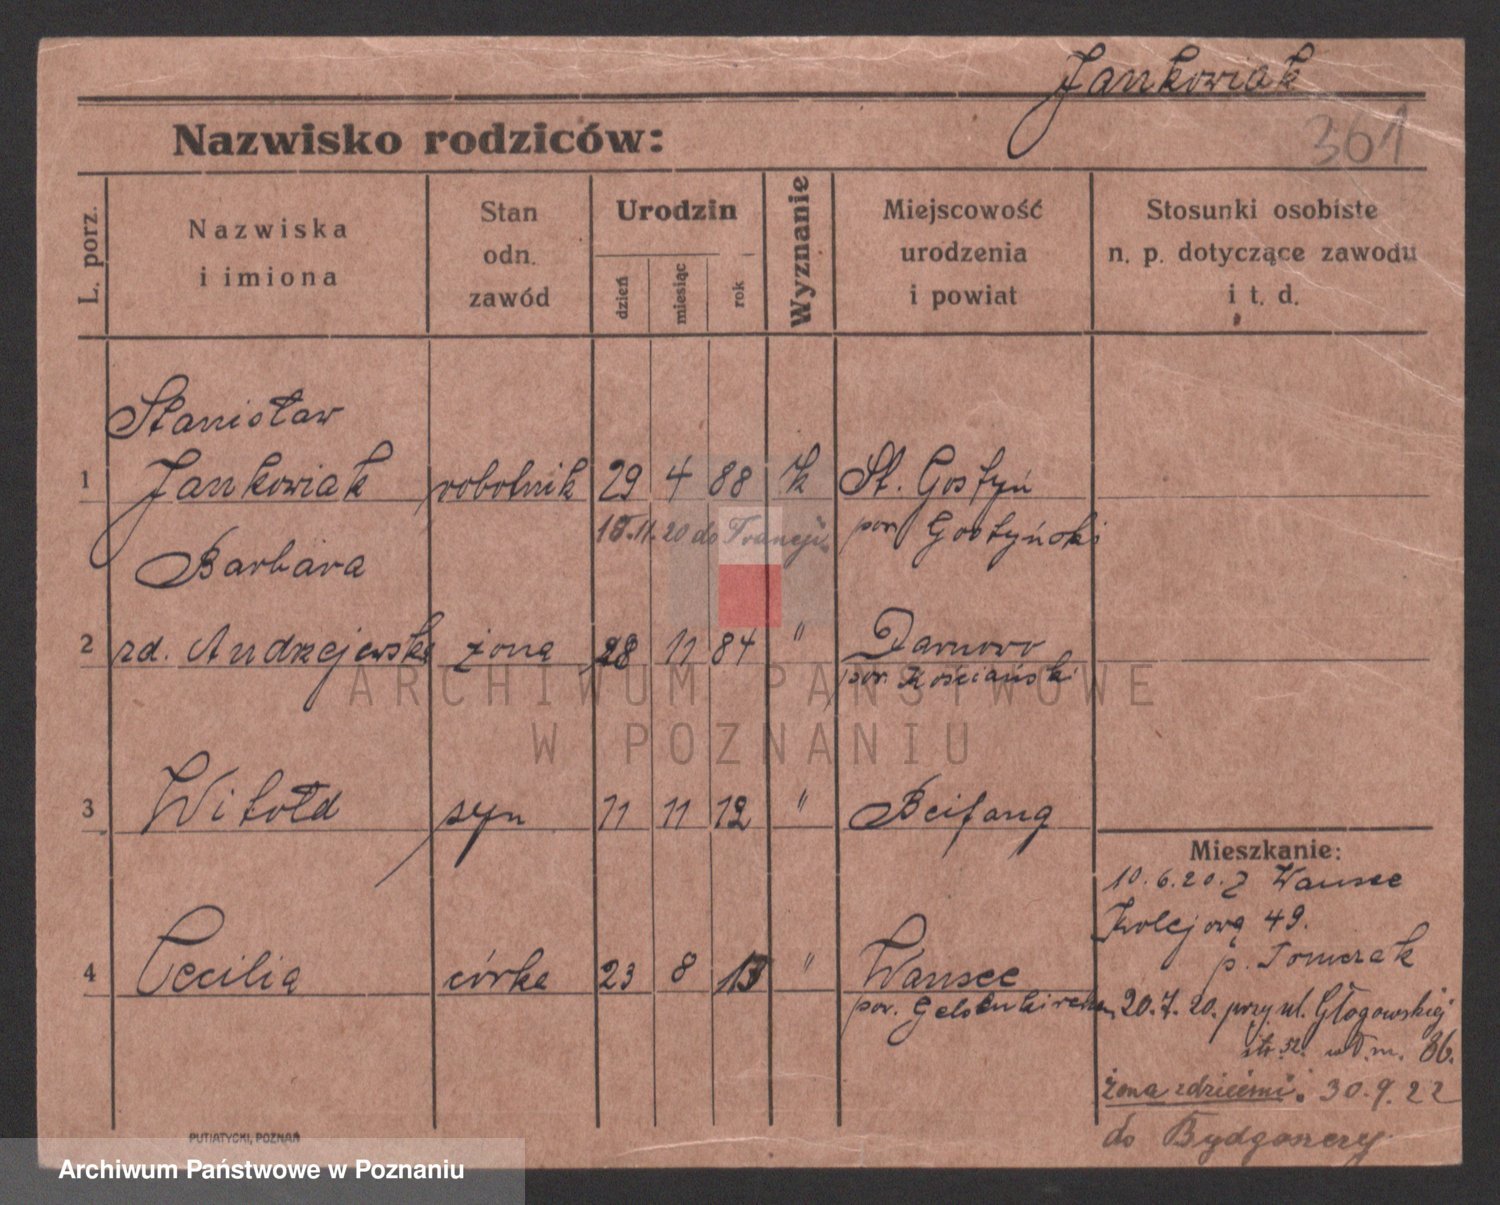 Jankowiak
Nazwisko rodziców:
361
L. porz.
Nazwiska
i imiona
Stan
odn.
zawód
Urodzin
dzień
miesiąc
rok
Wyznanie
Miejscowość
urodzenia
i powiat
Stosunki osobiste
n. p. dotyczące zawodu
i t. d.
Stanisław
1 Jankowiak robotnik 29 4 88 k St. Gostyń
11. 20 do Francji pow. Gostyński
Barbara
2 zd. Andrzejewska żona 28 11 84 " Darnowo
pow. Kościański
3 Witold syn 11 11 12 " Beifang
Mieszkanie:
10.6.20. z Wansee
Kolejowa 49.
p. Tomczak
4 Cecilia córka 23 8 13 " Wansee
pow. Gelsenkirchen
20.7.20. przy ul. Głogowskiej
str. 52. m. 86.
żona z dziećmi. 30.9.22
do Bydgoszczy
PUTIATYCKI, POZNAŃ
ARCHIWUM PAŃSTWOWE
W POZNANIU
Archiwum Państwowe w Poznaniu